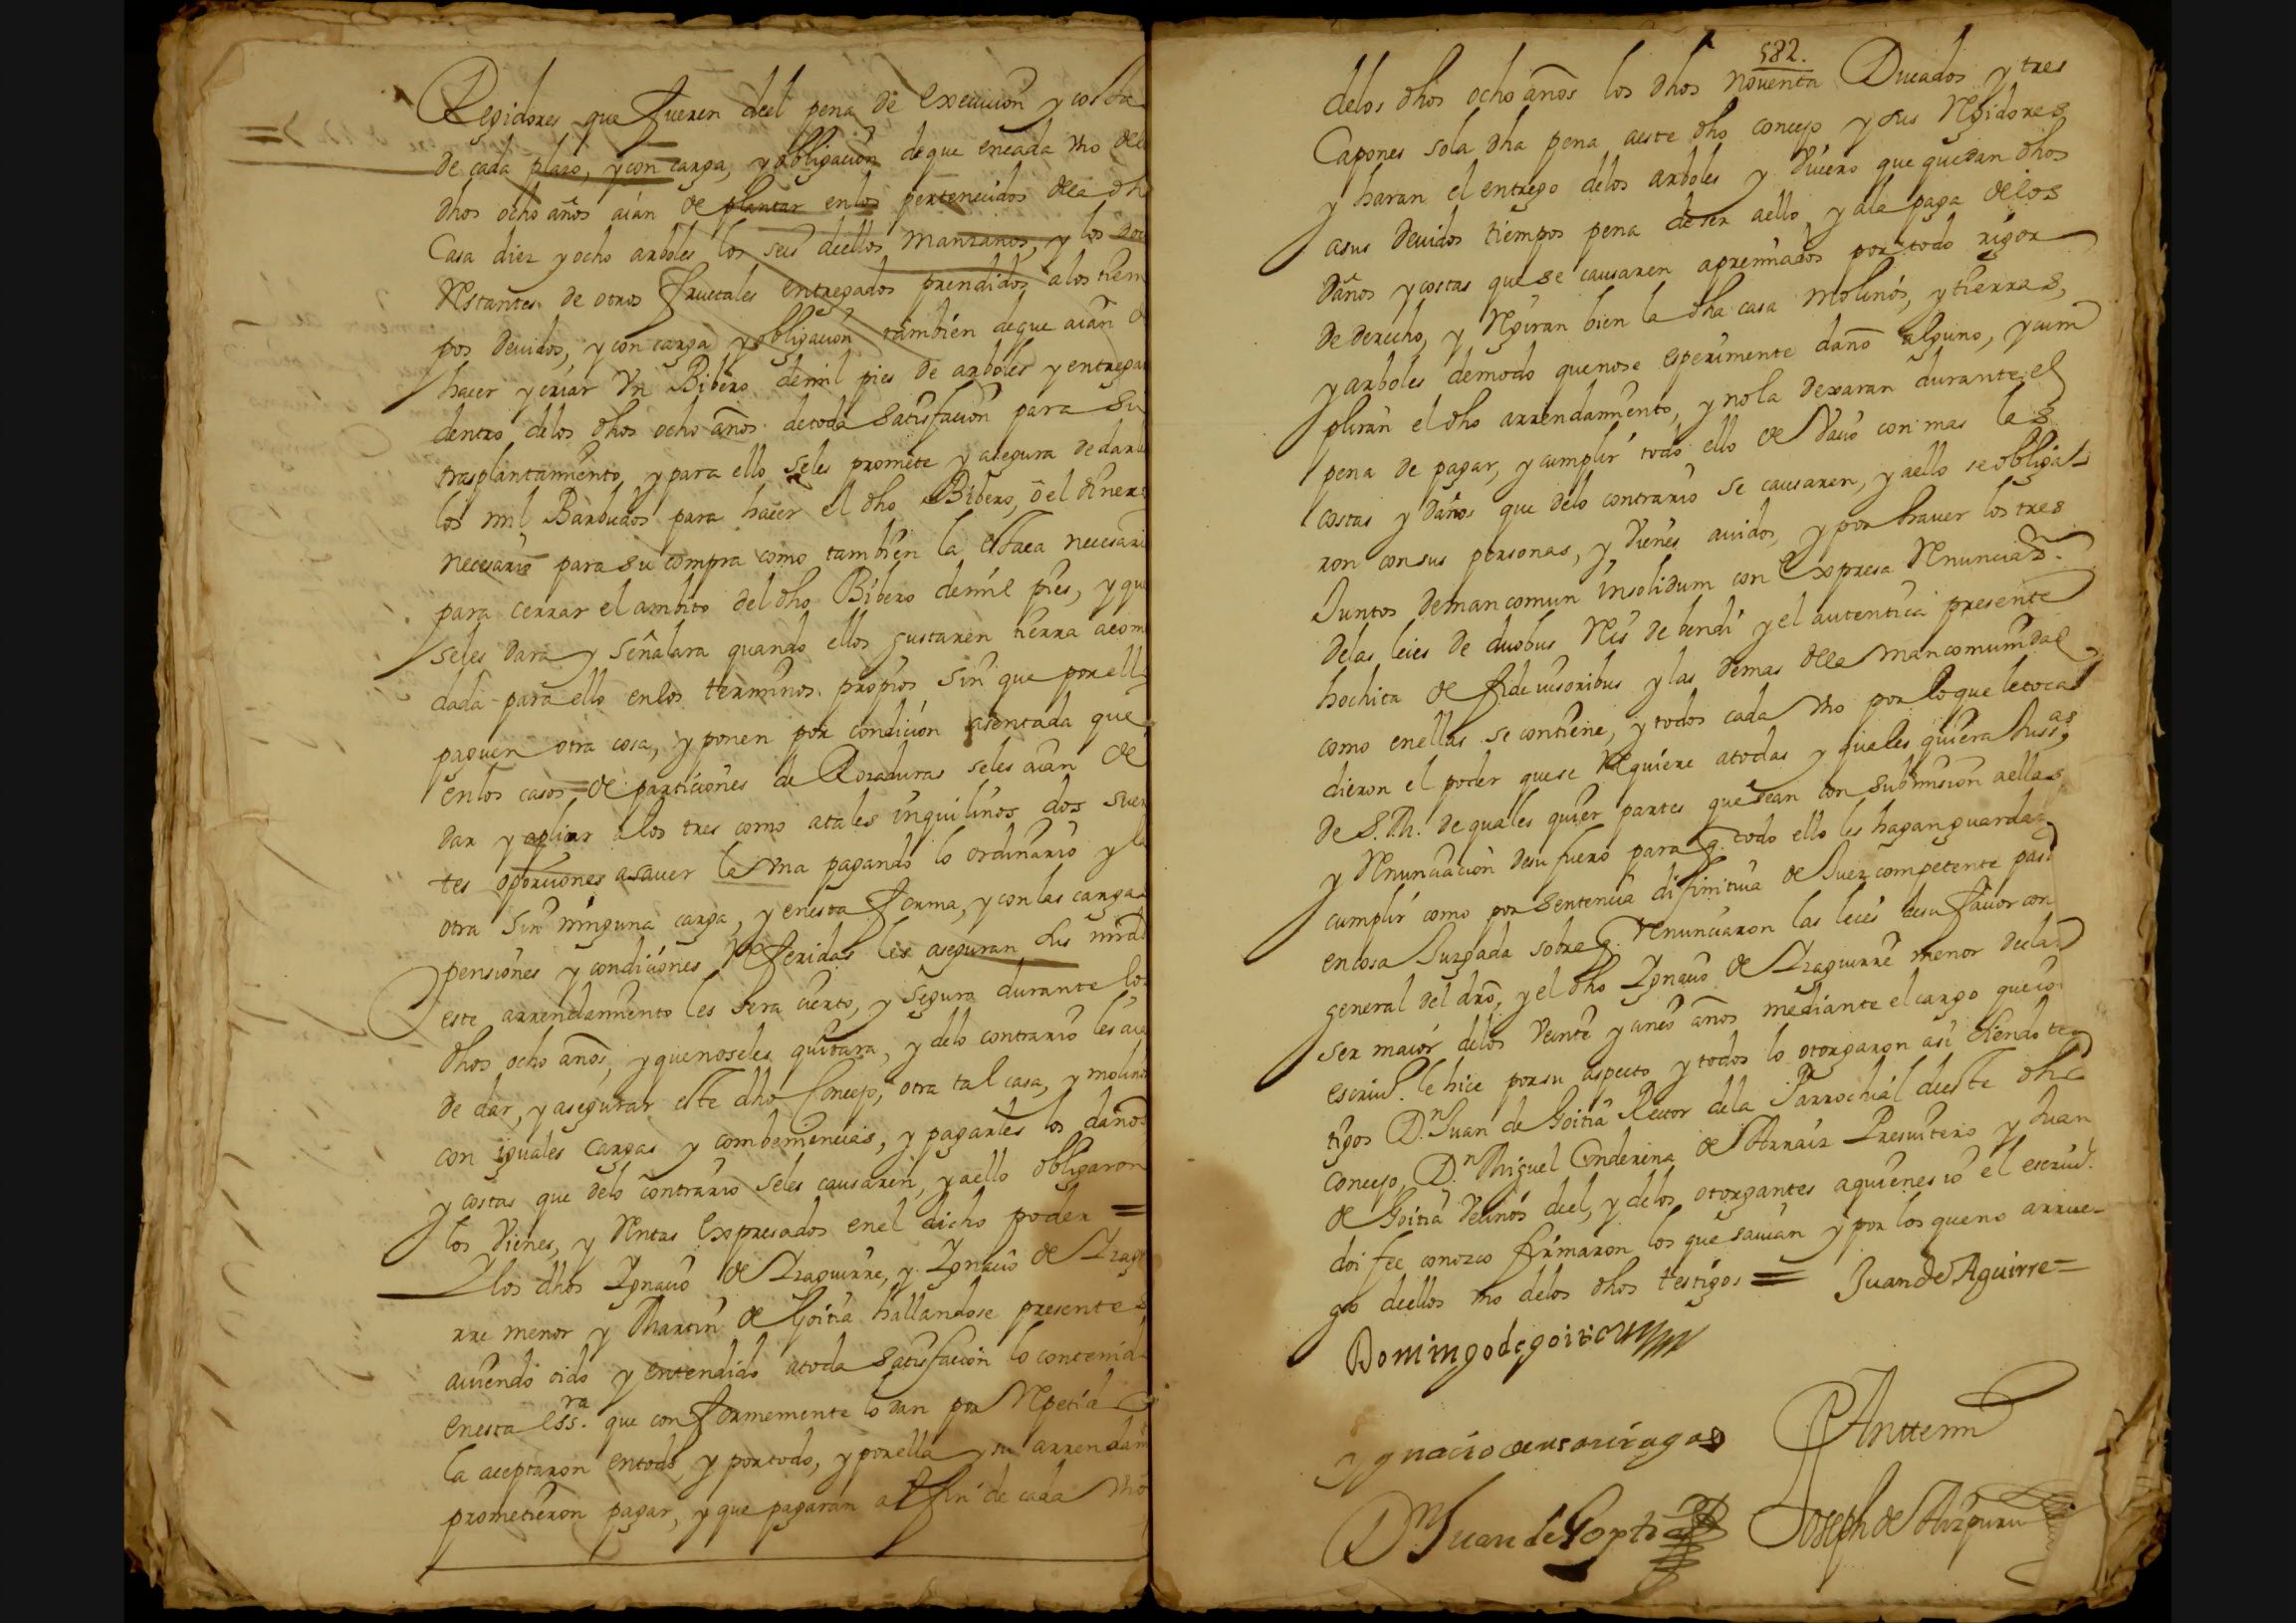 Regidores que fueren deel pena de execucion y costa
de cada plazo, y con carga, y obligacion de que encada vno de
dhos ocho años aian de plantar enlos pertenecidos dela dh
Casa diez y ocho arboles los seis deellos manzanos, y los do
restantes de otros fructales entregados prendidos alos tiem
pos deuidos, y con carga y obligacion tambien deque aian d
hacer y criar vn Bibero demil pies de arboles y entregar
dentro delos dhos ocho años detoda satisfacion para su
trasplantamiento, y para ello seles promete y asegura dedarle
los mil Barbudos para hacer el dho Bibero, o el dinero
necesario para su compra como tambien la estaca necesari
para cerrar el ambito del dho Bibero demil pies, y que
seles dara y señalara quando ellos gustaren tierra acom
dada para ello enlos terminos propios sin que por ello
paguen otra cosa, y ponen por condicion asentada que
enlos casos de particiones de Rozaduras seles aian de
dar y apliar alos tres como atales inquilinos dos suer
tes oporciones asauer la vna pagando lo ordinario y la
otra sin ninguna carga, y enesta forma, y con las cargas
pensiones y condiciones referidas les aseguran
este arrendamiento les sera cierto, y seguro durante los
dhos ocho años, y quenoseles quitara, y delo contrario les aia
de dar, y asegurar este dho Concejo, otra tal casa, y molino
con iguales cargas y combeniencias, y pagarles los daños
y costas que delo contrario seles causaren, y aello obligaron
los vienes, y rentas expresados enel dicho poder =
Ylos dhos Ignacio de Yraguirre, y Ignacio de Yragui
rre menor y Martin de Goitia hallandose presentes
auiendo oido y entendido atoda satisfacion lo contenido
enesta essra. que conformemente lo dan por repetido
la aceptaron entodo, y portodo, y porella y su arrendam
prometieron pagar, y que pagaran al fin de cada vno
582.
delos dhos ocho años los dhos noventa Ducados y tres
Capones sola dha pena aeste dho concejo y sus Regidores
y haran el entrego delos arboles y viuero que quedan dhos
asus deuidos tiempos pena deser aello, y ala paga delos
daños y costas que se causaren apremiados por todo rigor
de derecho, y regiran bien la dha casa molinos, y tierras,
y arboles demodo quenose esperimente daño alguno, y cum
pliran el dho arrendamiento, y nola dexaran durante el
pena de pagar, y cumplir todo ello de vacio con mas las
costas y daños que delo contrario se causaren, y aello se obliga
ron consus personas, y vienes auidos, y por hauer los tres
Juntos demancomun insolidum con expresa renunciaon.
delas leies de duobus reis debendi y el autentica presente
hochita de fide iusoribus y las demas dela mancomunidad
como enellas se contiene, y todos cada vno por loque letoca
dieron el poder quese requiere atodas y quales quiera Jusas
de S.M. de quales quier partes que sean con submision aellas
y renunciacion desu fuero para q. todo ello les hagan guardar
cumplir como por sentencia difinitiua de Juez competente pasa
encosa Juzgada sobre q. renunciaron las leies desu fauor con
general del dro, y el dho Ignacio de Yraguirre menor declaro
ser maior delos veinte y cinco años mediante el cargo que io
escriuo. le hice por su aspecto y todos lo otorgaron asi siendo tes
tigos Dn. Juan de Goitia Rector dela Parrochial deeste dho
concejo, Dn. Miguel Enderica de Arnaiz Presuitero y Juan
de Goitia vecinos deel, y delos otorgantes aquienes io el escriuo.
doi fee conozco firmaron los que sauian y por los queno arrue-
go deellos vno delos dhos testigos = Juan de Aguirre =
Domingo de goitia
Dn Juan de Goytia
Anttemi
Joseph de Aizpuru